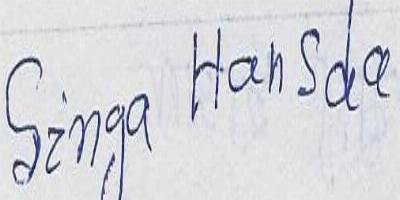 Singa Hansda